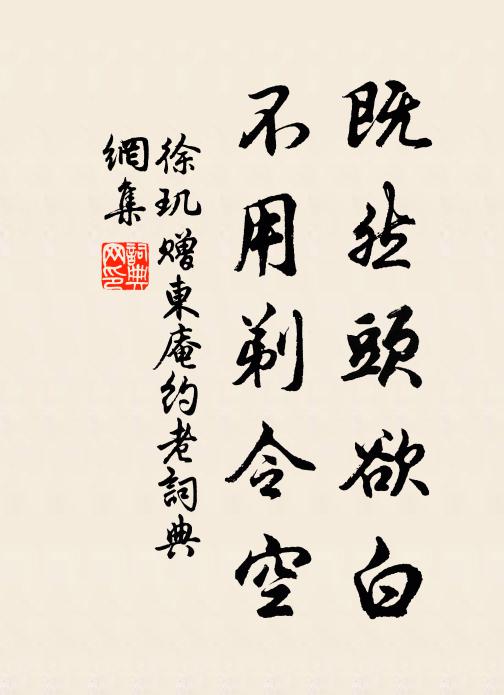 既然頭欲白
不用剃令空
徐玑贈東庵約老詞典
網集
詞典
网印